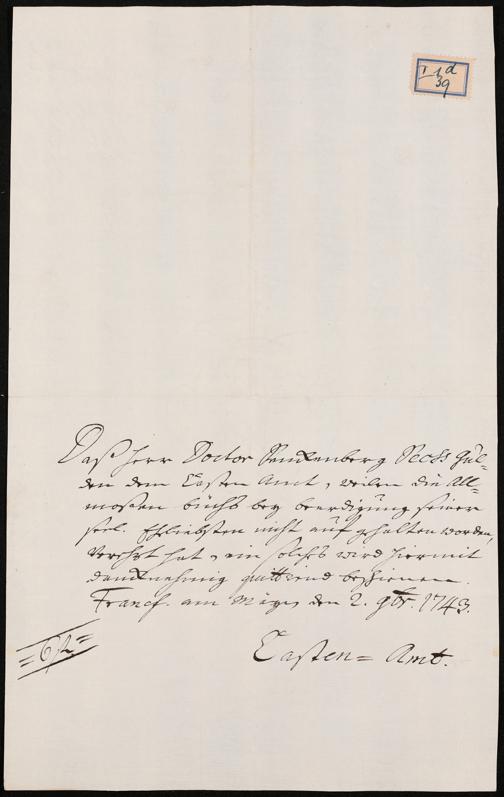 I 1 d
39
Daß Herr Doctor Senckenberg Sechs Gul-
den dem Casten Amt, weilen die All-
mosen büchs bey beerdigung seiner
seel. Ehliebsten nicht auf gehalten worden,
verehrt hat, ein solches wird hiermit
dancknehmig quittirend bescheinet.
Francf. am Mayn den 2. 9br. 1743.
Casten = Amt.
= 6 f =